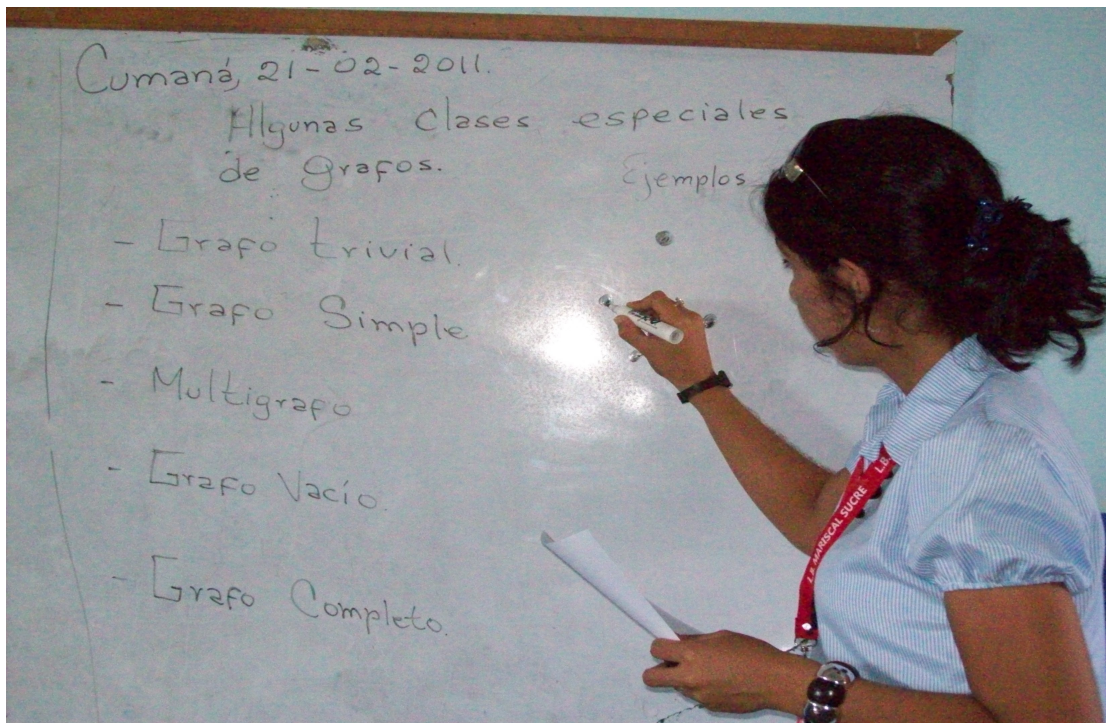 Cumaná, 21-02-2011.
Algunas clases especiales
de grafos.
Ejemplos
- Grafo trivial.
- Grafo Simple
- Multigrafo
- Grafo Vacío.
- Grafo Completo.
L.B. MARISCAL SUCRE L.B.